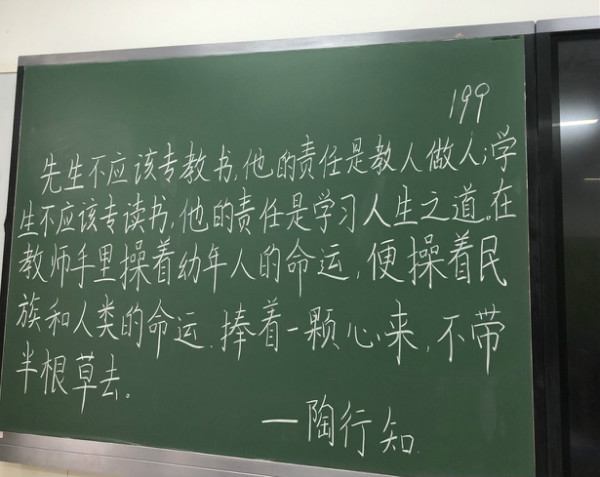 199
先生不应该专教书,他的责任是教人做人;学
生不应该专读书,他的责任是学习人生之道。在
教师手里操着幼年人的命运,便操着民
族和人类的命运.捧着一颗心来,不带
半根草去。
—陶行知